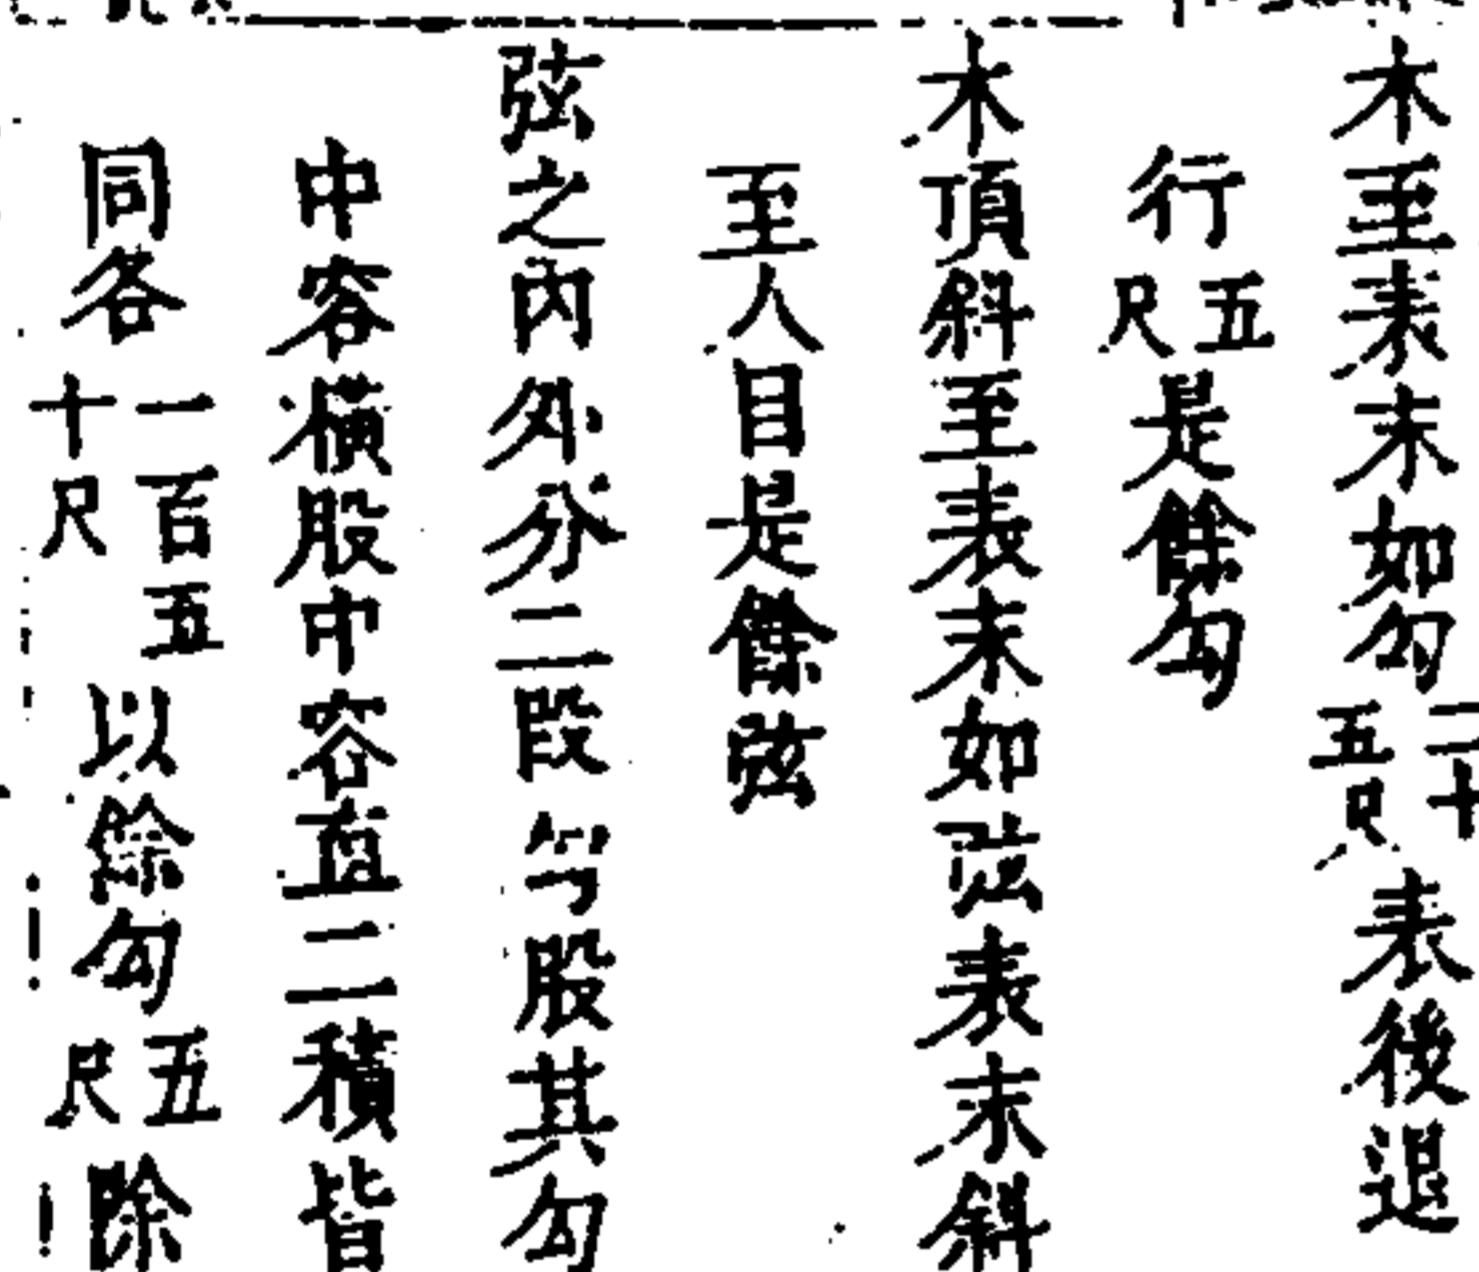 木至表末如勾二十五尺表後退
行五尺是餘勾
木頂斜至表末如弦表末斜
至人目是餘弦
弦之內外分二段勾股其勾
中容橫股中容直二積皆
同各一百五十尺以餘勾五尺除